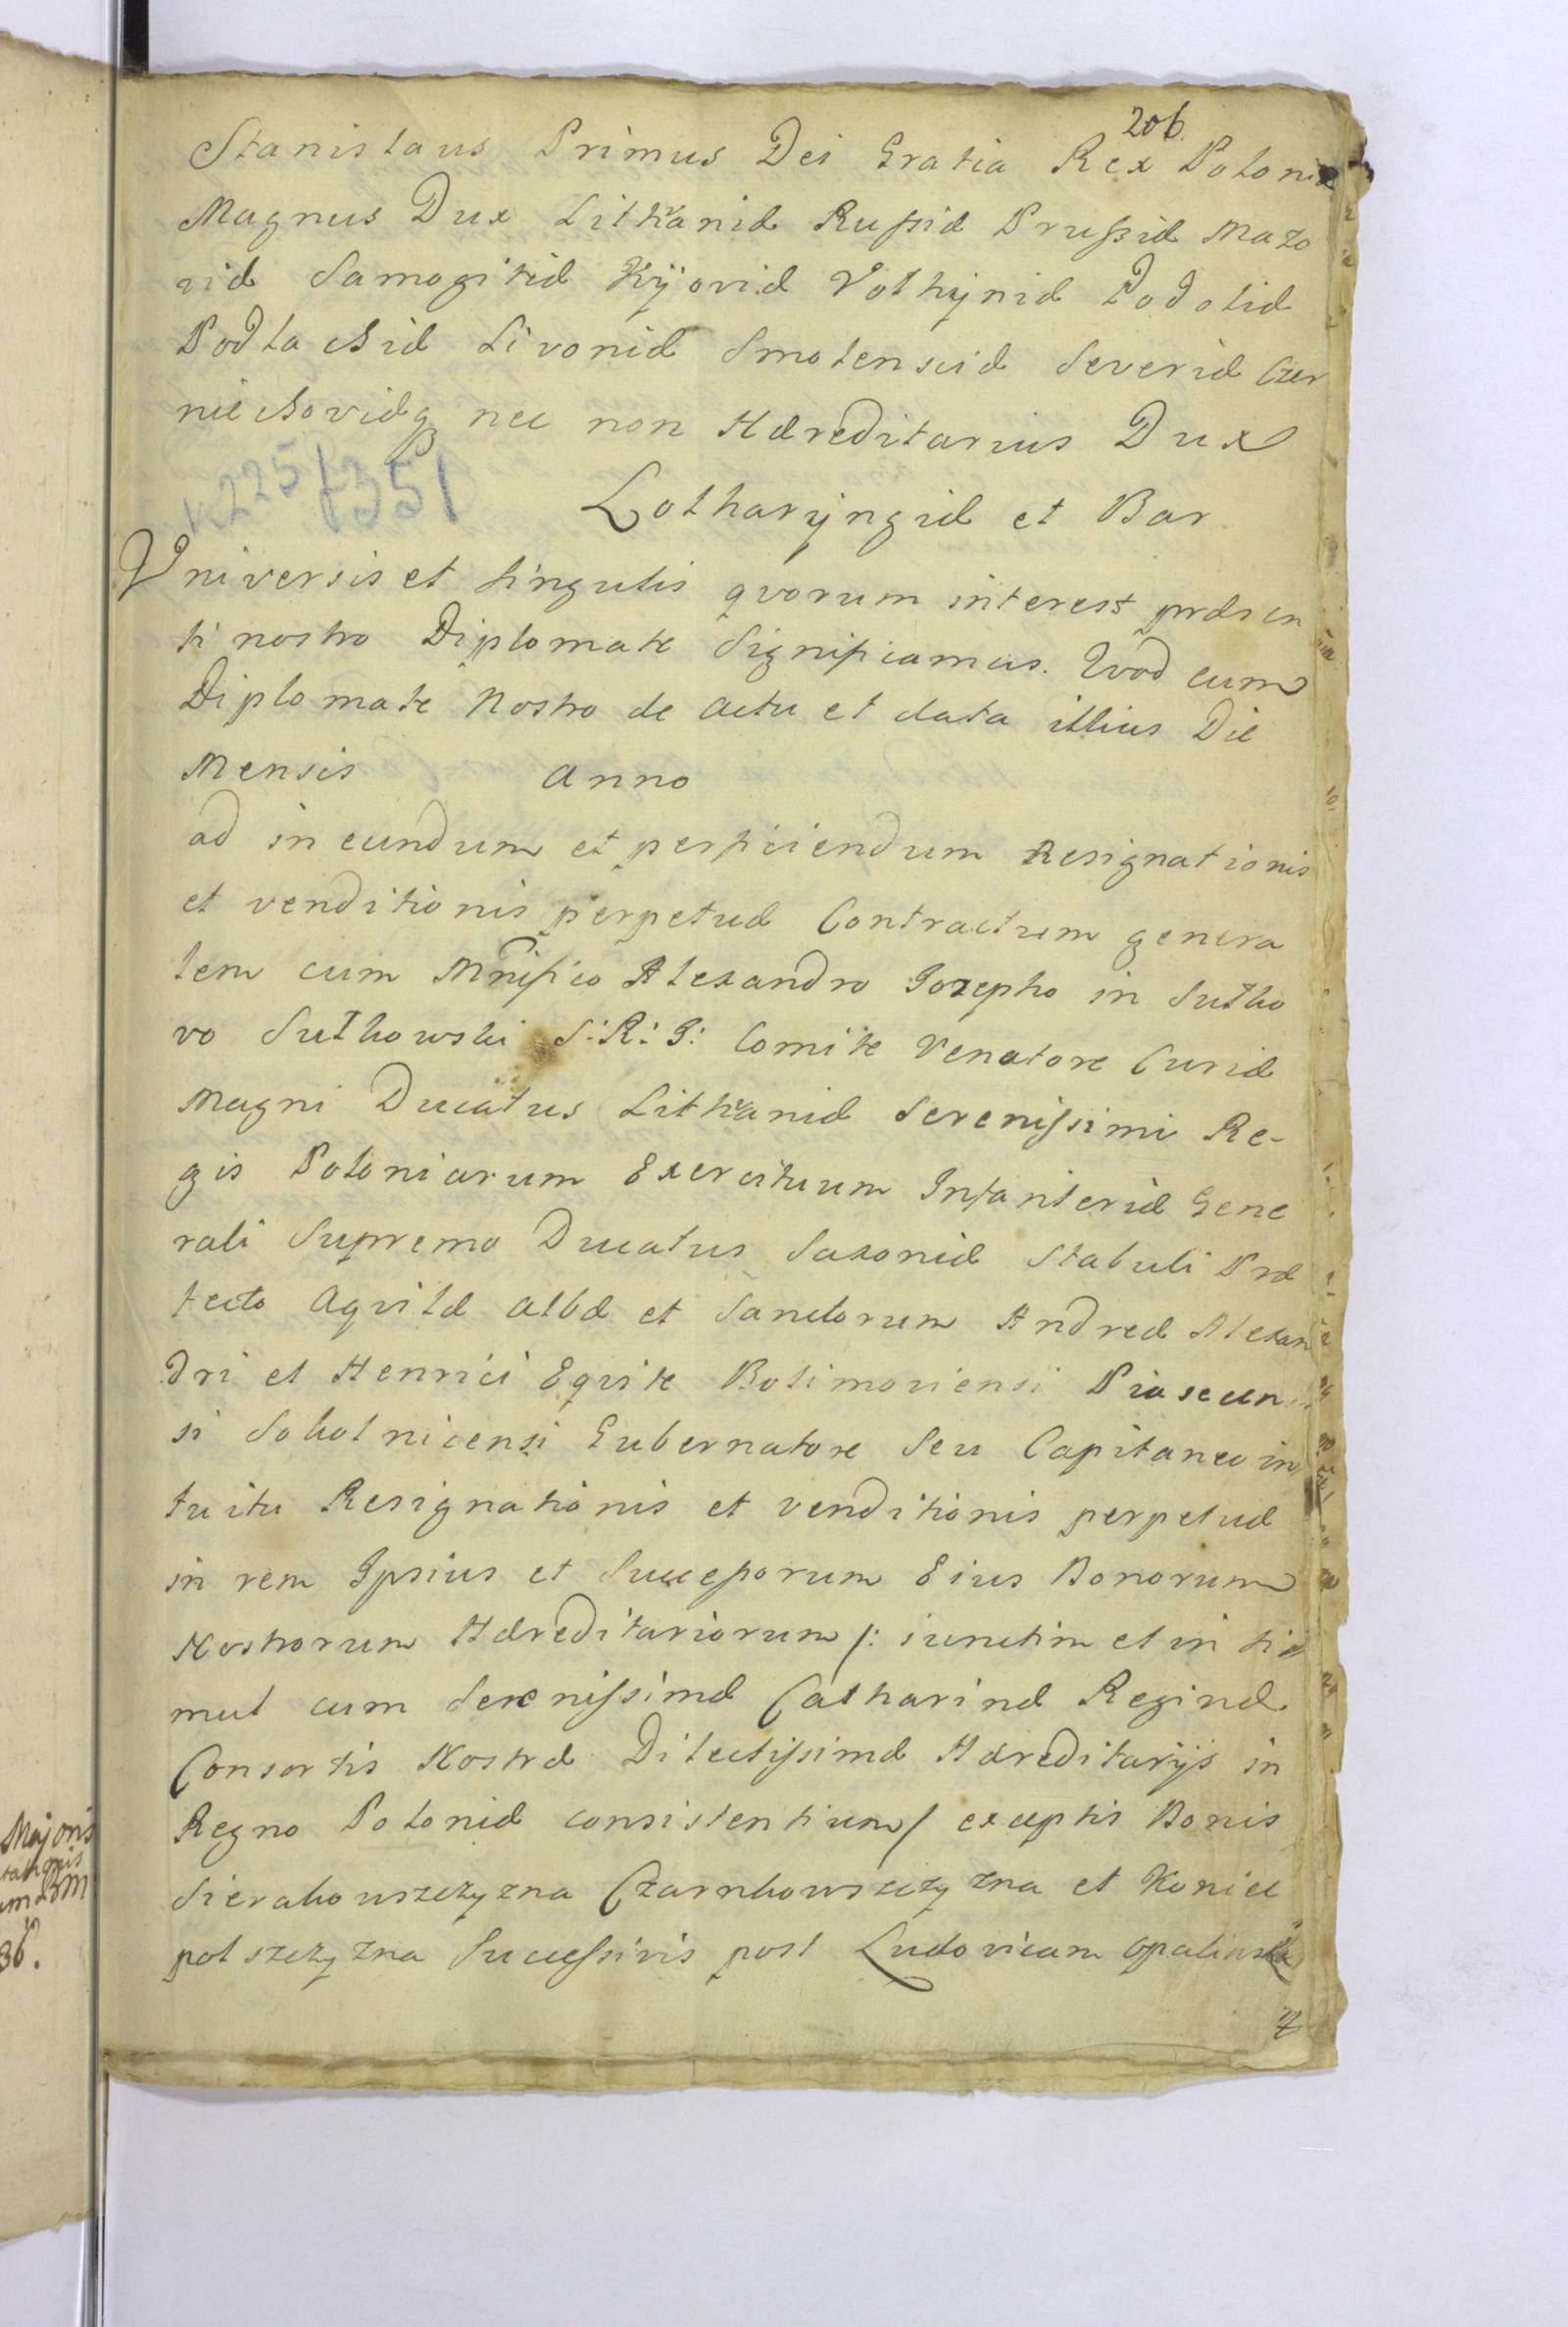 206.
Stanislaus Primus Dei Gratia Rex Poloniæ
Magnus Dux Lithvaniæ Russiæ Prussiæ Mazo
viæ Samogitiæ Kijoviæ Volhyniæ Podoliæ
Podlachiæ Livoniæ Smolensciæ Severiæ Czer
niechoviæq nec non Hæreditarius Dux
K 225 f 351
Lotharyngiæ et Bar
Vniversis et singulis qvorum interest præsen
ti nostro Diplomate Significamus. Qvod cum
Diplomate Nostro de actu et data illius Die
Mensis anno
ad ineundum et perficiendum Resignationis
et venditionis perpetuæ Contractum genera
lem cum Mnifico Alexandro Jozepho in Sulko
vo Sulkowski S:R:I: Comite Venatore Curiæ
Magni Ducatus Lithvaniæ Serenissimi Re-
gis Poloniarum Exercituum Infanteriæ Gene
rali Supremo Ducatus Saxoniæ Stabuli Præ
fecto Aqvilæ albæ et Sanctorum Andreæ Alexan
dri et Henrici Eqvite Bolimoviensi Piasecen
si Sokolnicensi Gubernatore Seu Capitaneo in
tuitu Resignationis et venditionis perpetuæ
in rem Ipsius et Successorum Eius Bonorum
Nostrorum Hæreditariorum /: iunctim et in si
mul cum Serenissima Catharinæ Reginæ
Consortis Nostræ Dilectissimæ Hæreditarijs in
Regno Poloniæ consistentium / exceptis Bonis
Sierakowszczyzna Czarnkowszczyzna et Koniec
polszczyzna Successivis post Ludovicam Opalinska
Majoris
36.